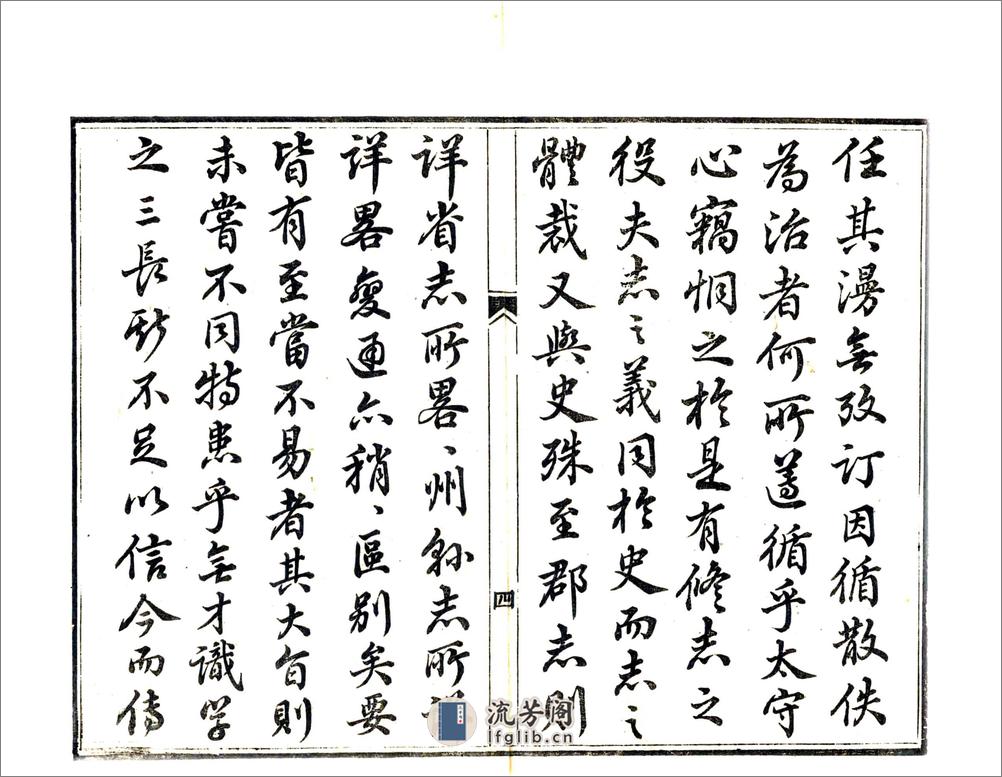 任其漫無攷訂因循散佚
為治者何所遵循乎太守
心竊惘之於是有修志之
役夫志之義同於史而志之
體裁又與史殊至郡志則
詳省志所畧、州縣志所
詳畧變通亦稍、區别矣要
皆有至當不易者其大旨則
未嘗不同特患乎無才識學
之三長斯不足以信今而傳
四
流芳阁
lfglib.cn